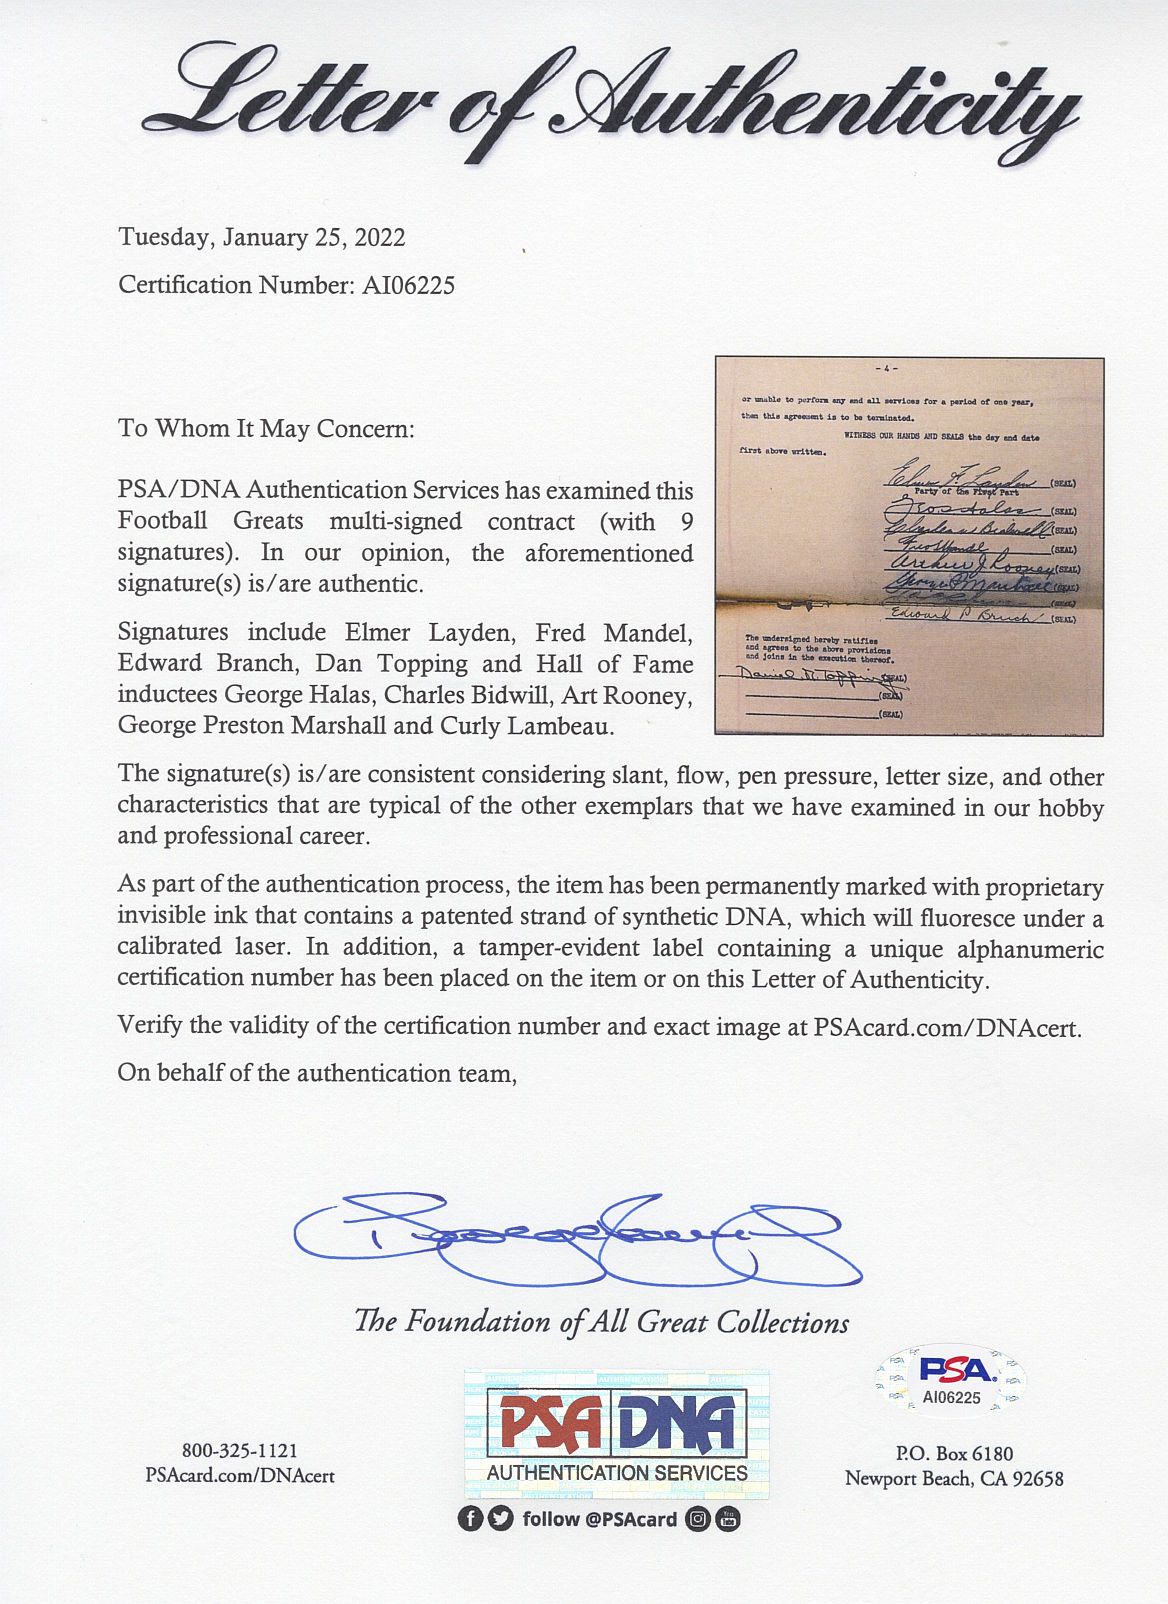 Letter of Authenticity
Tuesday, January 25, 2022
Certification Number: AI06225
To Whom It May Concern:
PSA/DNA Authentication Services has examined this
Football Greats multi-signed contract (with 9
signatures). In our opinion, the aforementioned
signature(s) is/are authentic.
Signatures include Elmer Layden, Fred Mandel,
Edward Branch, Dan Topping and Hall of Fame
inductees George Halas, Charles Bidwill, Art Rooney,
George Preston Marshall and Curly Lambeau.
- 4 -
or unable to perform any and all services for a period of one year,
then this agreement is to be terminated.
WITNESS OUR HANDS AND SEALS the day and date
first above written.
Elmer F. Layden (SEAL)
Party of the First Part
Geo S Halas (SEAL)
Charles W Bidwill (SEAL)
Fred Mandel (SEAL)
Arthur J. Rooney (SEAL)
George P Marshall (SEAL)
(SEAL)
Edward P Bruch (SEAL)
The undersigned hereby ratifies
and agrees to the above provisions
and joins in the execution thereof.
Daniel R. Topping (SEAL)
(SEAL)
(SEAL)
The signature(s) is/are consistent considering slant, flow, pen pressure, letter size, and other
characteristics that are typical of the other exemplars that we have examined in our hobby
and professional career.
As part of the authentication process, the item has been permanently marked with proprietary
invisible ink that contains a patented strand of synthetic DNA, which will fluoresce under a
calibrated laser. In addition, a tamper-evident label containing a unique alphanumeric
certification number has been placed on the item or on this Letter of Authenticity.
Verify the validity of the certification number and exact image at PSAcard.com/DNAcert.
On behalf of the authentication team,
The Foundation of All Great Collections
PSA
AI06225
PSA DNA
AUTHENTICATION SERVICES
800-325-1121
PSAcard.com/DNAcert
P.O. Box 6180
Newport Beach, CA 92658
follow @PSAcard